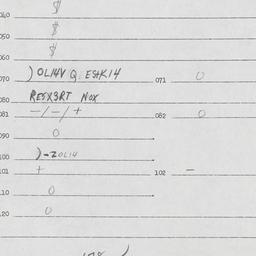 040 $
050 $
060 $
070 ) OL14V Q ES+K14 071 0
080 REEX3RT NOX
081 -/-/+ 082 0
090 0
100 )-ZOL14
101 + 102 -
110 0
120 0